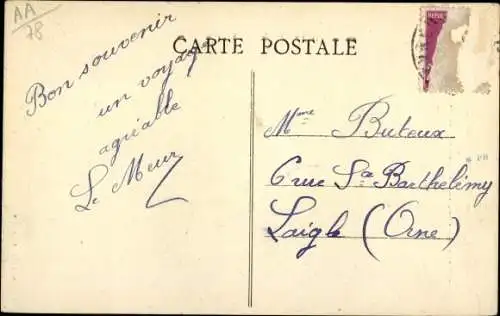 AA
78
CARTE POSTALE
Bon souvenir
un voyage
agréable
Le Meur
Mme Buteux
6 rue St Barthélémy
Laigle (Orne)